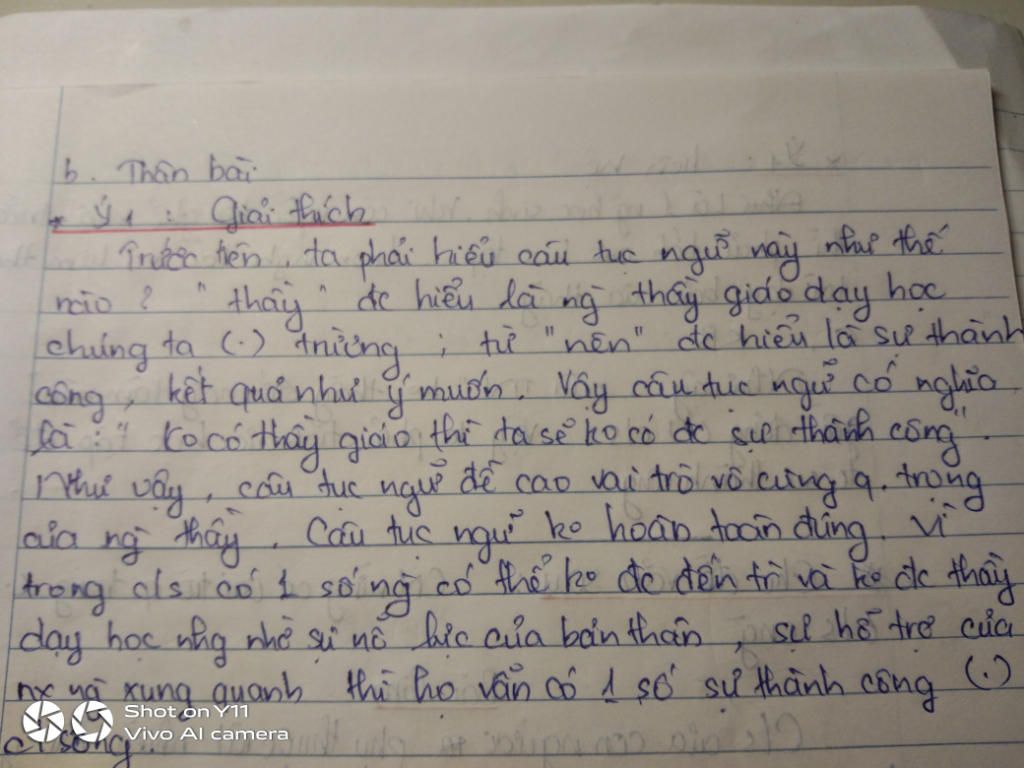 b. Thân bài
* Ý1 : Giải thích
Trước tiên, ta phải hiểu câu tục ngữ này như thế
nào ? "thầy" đc hiểu là ng` thầy giáo dạy học
chúng ta (.) trường ; từ "nên" đc hiểu là sự thành
công, kết quả như ý muốn. Vậy câu tục ngữ có nghĩa
là : " ko có thầy giáo thì ta sẽ ko có đc sự thành công".
Như vậy, câu tục ngữ đề cao vai trò vô cùng q. trọng
của ng` thầy. Câu tục ngữ ko hoàn toàn đúng. Vì
trong c/s có 1 số ng` có thể ko đc đến trì và ko đc thầy
dạy học nhg nhờ sự nỗ lực của bản thân, sự hỗ trợ của
nx ng` xung quanh thì họ vẫn có 1 số sự thành công (.)
sống.
Shot on Y11
Vivo AI camera